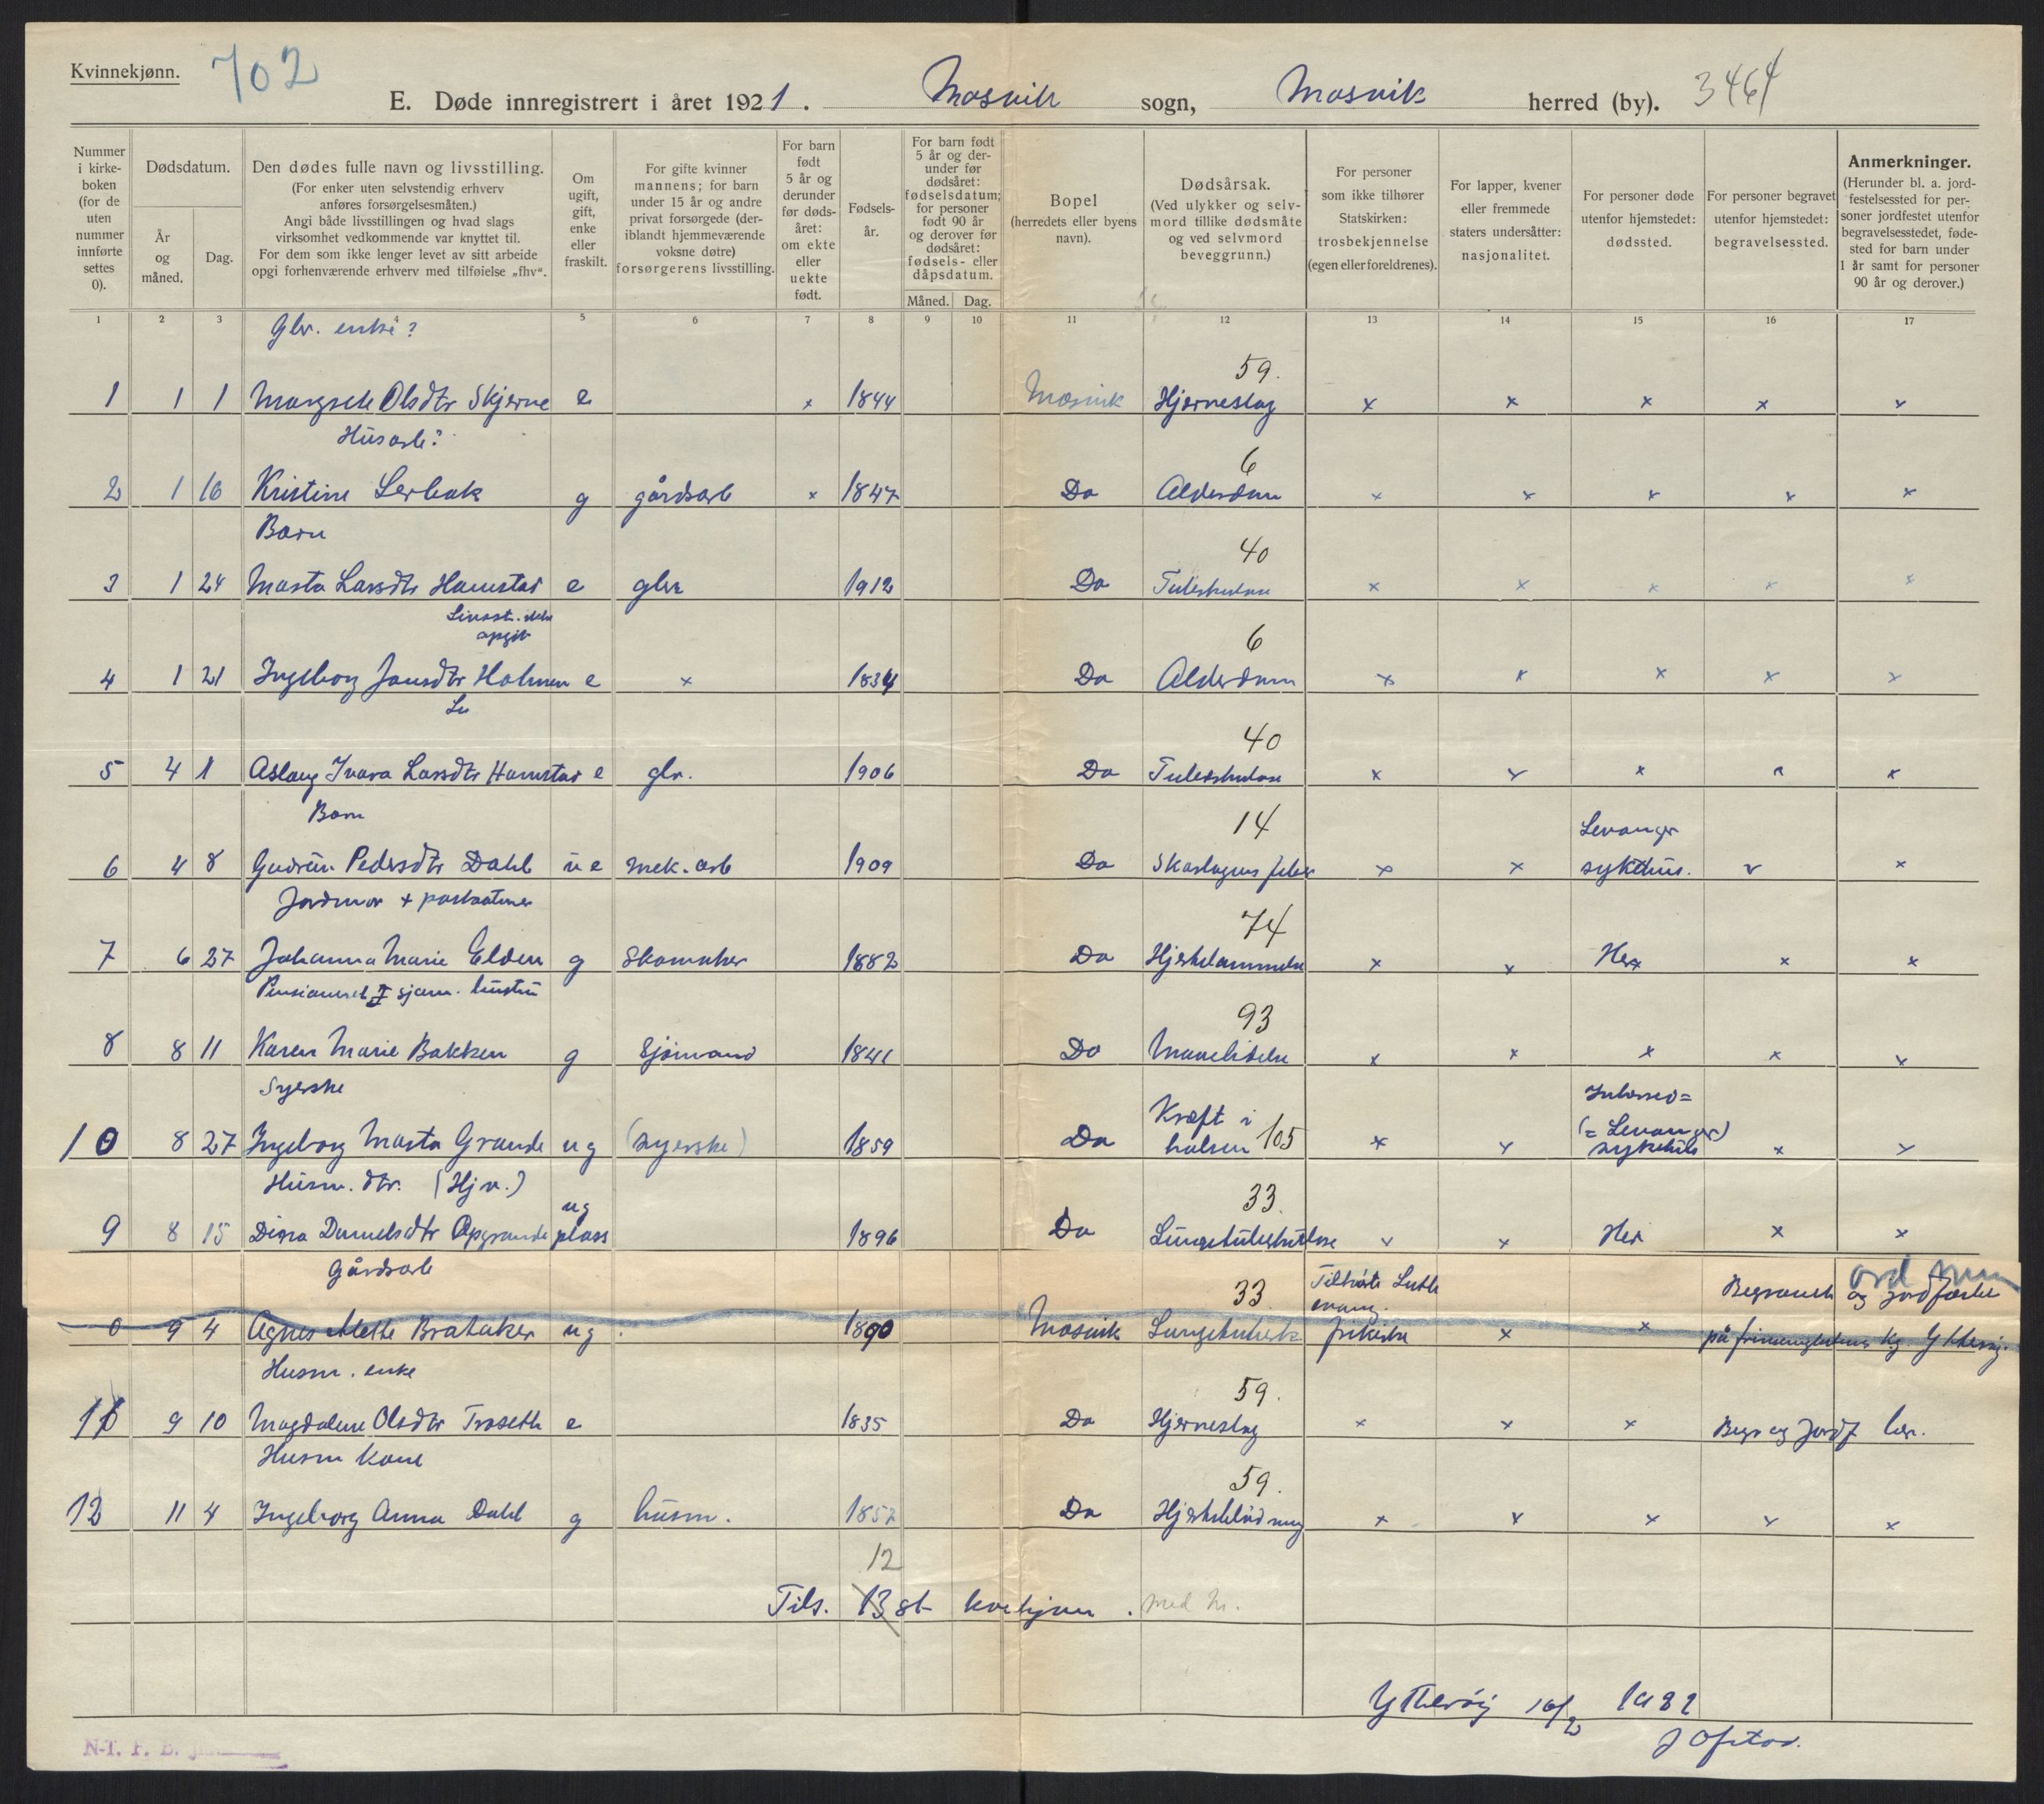 Kvinnekjønn.
702
E. Døde innregistrert i året 1921. Mosvik sogn, Mosvik herred (by). 3464
Nummer i kirke-boken (for de uten nummer innførte settes 0).
Dødsdatum.
År og måned.
Dag.
Den dødes fulle navn og livsstilling.
(For enker uten selvstendig erhverv anføres forsørgelsesmåten.)
Angi både livsstillingen og hvad slags virksomhet vedkommende var knyttet til.
For dem som ikke lenger levet av sitt arbeide opgi forhenværende erhverv med tilføielse „fhv“.
Om ugift, gift, enke eller fraskilt.
For gifte kvinner mannens; for barn under 15 år og andre privat forsørgede (deriblandt hjemmeværende voksne døtre) forsørgerens livsstilling.
For barn født 5 år og derunder før døds-året: om ekte eller uekte født.
Fødsels-år.
For barn født 5 år og der-under før dødsåret: fødselsdatum; for personer født 90 år og derover før dødsåret: fødsels- eller dåpsdatum.
Måned. Dag.
Bopel (herredets eller byens navn).
Dødsårsak.
(Ved ulykker og selv-mord tillike dødsmåte og ved selvmord beveggrunn.)
For personer som ikke tilhører Statskirken: trosbekjennelse (egen eller foreldrenes).
For lapper, kvener eller fremmede staters undersåtter: nasjonalitet.
For personer døde utenfor hjemstedet: dødssted.
For personer begravet utenfor hjemstedet: begravelsessted.
Anmerkninger.
(Herunder bl. a. jord-festelsessted for per-soner jordfestet utenfor begravelsesstedet, føde-sted for barn under 1 år samt for personer 90 år og derover.)
1 2 3 4 5 6 7 8 9 10 11 12 13 14 15 16 17
Glv. enke?
59.
1 1 1 Margrete Olsdtr Skjerve e x 1844 Mosvik Hjerneslag x x x x x
Husarb?
6
2 1 16 Kristine Lerbak g gårdsarb x 1847 Do Alderdom x x x x x
Barn
40
3 1 24 Marta Larsdtr Hamstad e glv 1912 Do Tuberkulose x x x x x
Livsst. ikke opgit
6
4 1 21 Ingeborg Jansdtr Holmen e x 1834 Do Alderdom x x x x x
40
5 4 1 Aslaug Ivara Larsdtr Hamstad e glv. 1906 Do Tuberkulose x x x x x
Barn
14
Levanger
6 4 8 Gudrun Pedersdtr Dahl u e mek. arb 1909 Do Skarlagensfeber x x sykehus. x x
Jordmor +
74
7 6 27 Johanna Marie Elden g Skomaker 1882 Do Hjertelammelse x x Her x x
Pensioneret sjøm. hustru
93
8 8 11 Karen Marie Bakken g Sjømand 1841 Do Mavelidelse x x x x x
Syerske
Kræft i
Innherred=
10 8 27 Ingeborg Marta Grande ug (syerske) 1859 Do halsen 105 x x (= Levanger) sykehus x x
Husm. dtr. (Hjv.)
ug
33
9 8 15 Danielsdtr Opgrande plass 1896 Do Lungetuberkulose x x Her x x
Gårdsarb
33 Tilhørte Luth evang. Begravet og jordfæstet
0 9 4 Agnes Mette Brataker ug. 1890 Mosvik Lungetuberk frikirke x x på frimenighetens kg. Ytterøy.
Husm. enke
59.
11 9 10 Magdalene Olsdtr Troseth e 1835 Do Hjerneslag x x x Begr og jordf her.
Husm kone
59.
12 11 4 Ingeborg Anna Dahl g husm. 1852 Do Hjerteblødning x x x x x
12
Tils. 13 st kvekjøn. med M.
Ytterøy 16/2 1932
J Ofstad.
N-T. F. B.